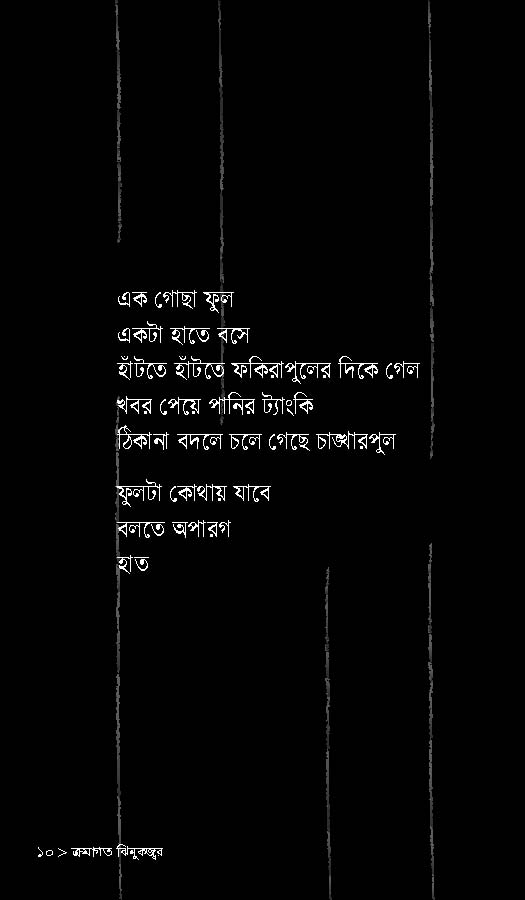 এক গোছা ফুল
একটা হাতে বসে
হাঁটতে হাঁটতে ফকিরাপুলের দিকে গেল
খবর পেয়ে পানির ট্যাংকি
ঠিকানা বদলে চলে গেছে চাঙ্খারপুল
ফুলটা কোথায় যাবে
বলতে অপারগ
হাত
১০ > ক্রমাগত ঝিনুকজ্বর